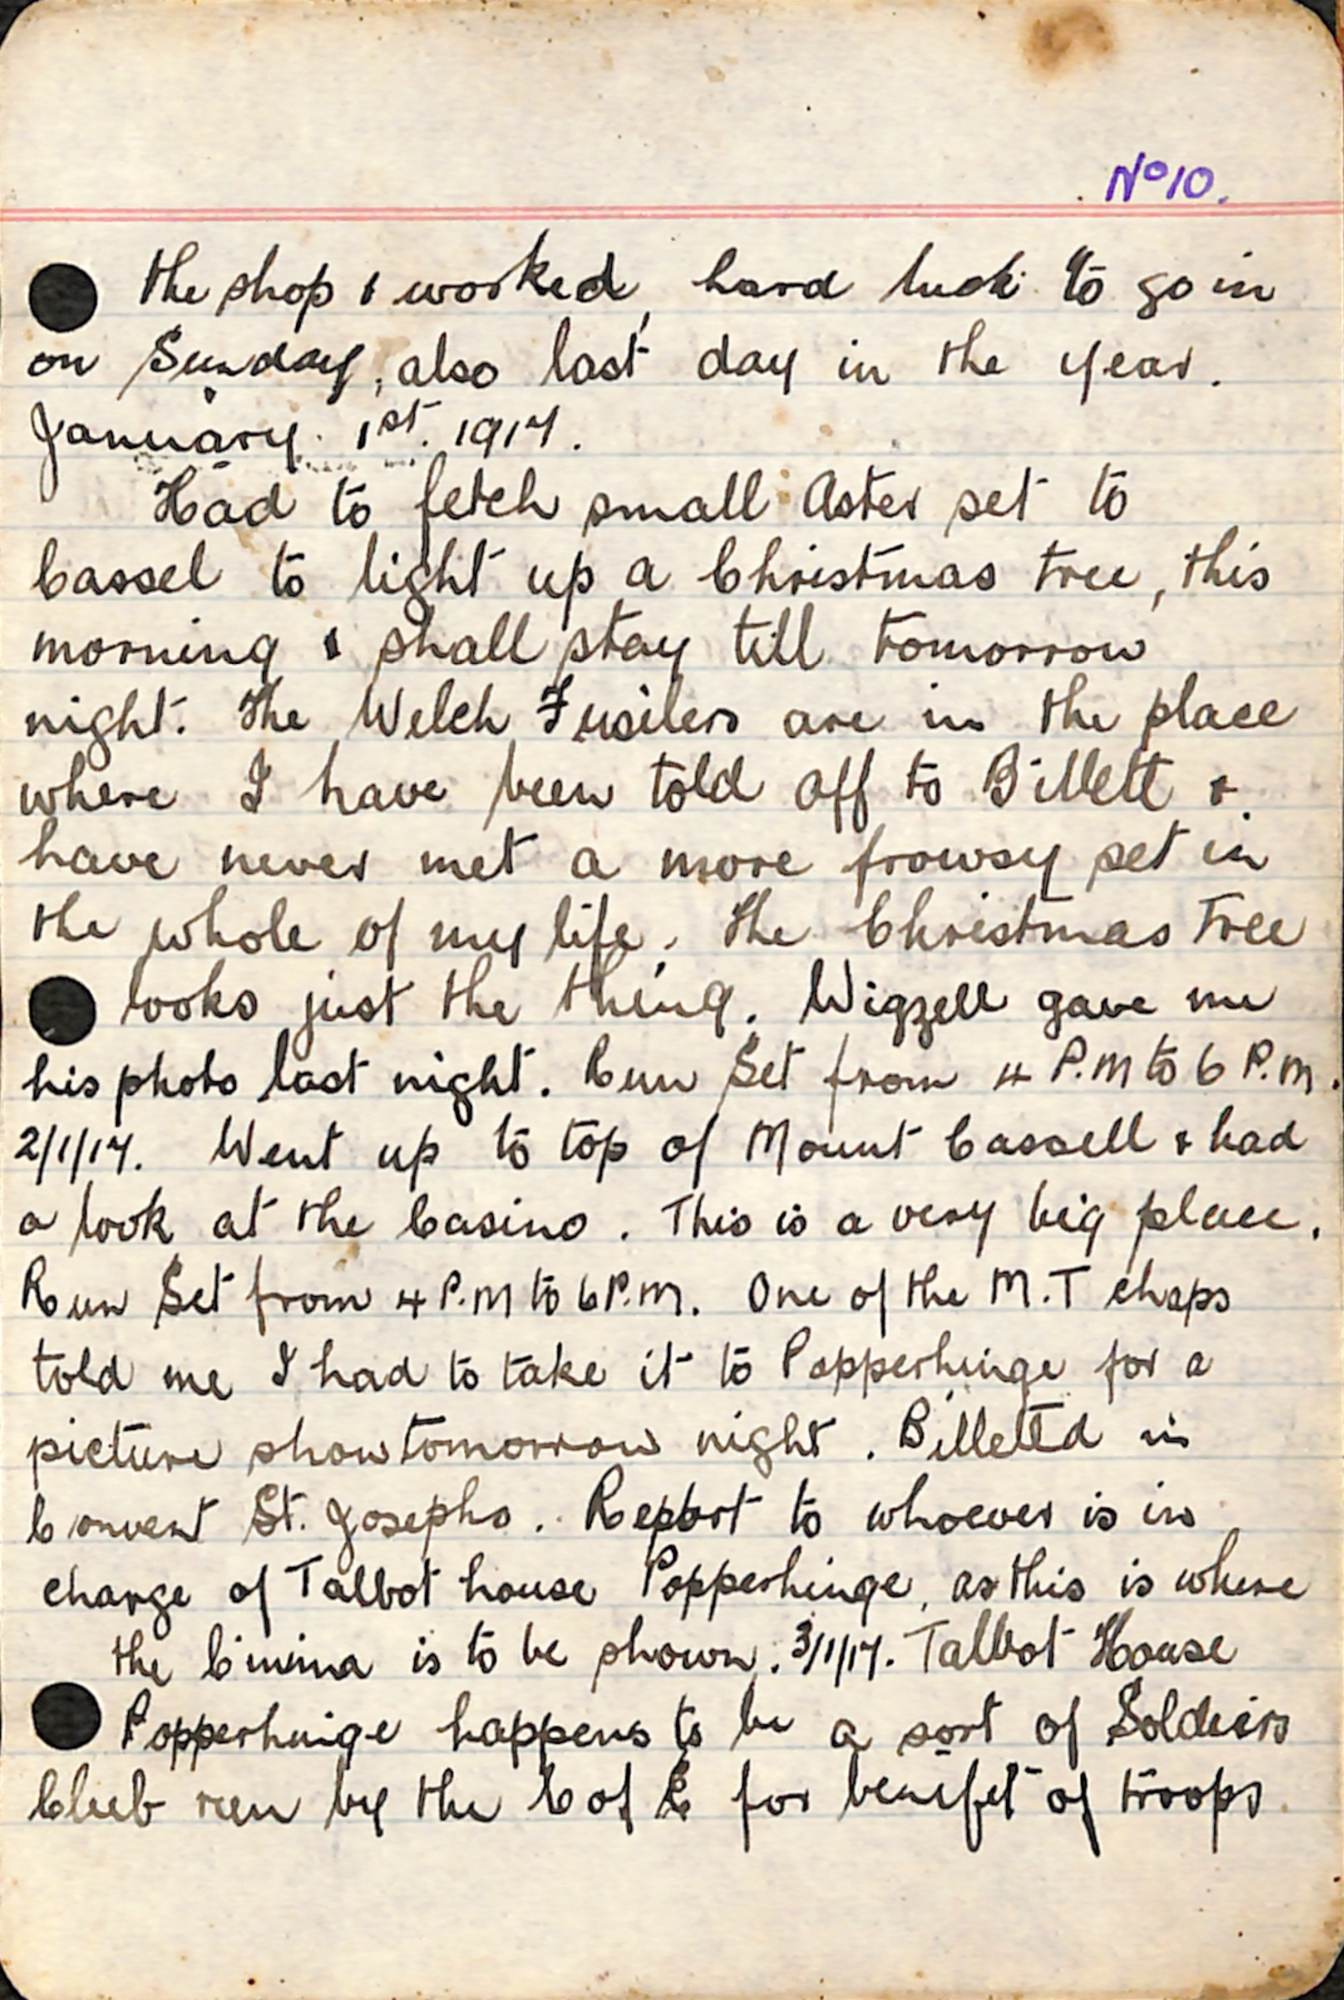 No 10.
the shop & worked, hard luck to go in
on Sunday, also last day in the year.
January 1st. 1917.
Had to fetch small Aster set to
Cassel to light up a Christmas tree, this
morning & shall stay till tomorrow
night. The Welch Fusilers are in the place
where I have been told off to Billett &
have never met a more frowsy set in
the whole of my life. The Christmas Tree
looks just the thing. Wigzell gave me
his photo last night. Run Set from 4 P.M to 6 P.M.
2/1/17. Went up to top of Mount Cassell & had
a look at the Casino. This is a very big place.
Run Set from 4 P.M to 6 P.M. One of the M.T chaps
told me I had to take it to Popperhinge for a
picture show tomorrow night. Billetted in
Convent St. Josephs. Report to whoever is in
charge of Talbot house Popperhinge, as this is where
the Cinima is to be shown. 3/1/17. Talbot House
Popperhinge happens to be a sort of Soldiers
Club run by the C of E for benifet of troops